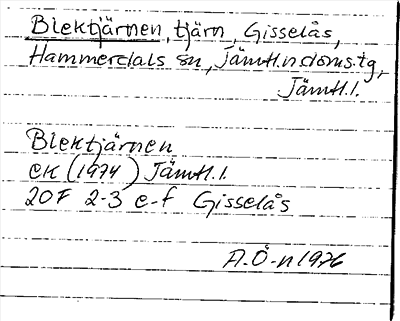 Blektjärnen, tjärn, Gisselås,
Hammerdals sn, Jämtl.n doms.tg,
Jämtl.l.
Blektjärnen
ek (1974) Jämtl.l.
20F 2-3 e-f Gisselås
A.Ö-n 1976